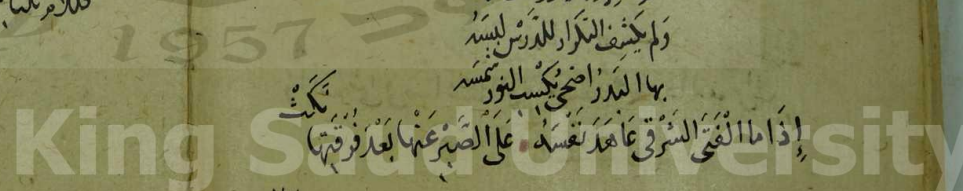 ولم يكشف التكرار للدرس لبسه
بها البدر اضحى يكسب النور شمسه
إذا ما الفتى الشرقي عاهد نفسه على الصبر عنها بعد فرقتها نكث
1957
King Saud University